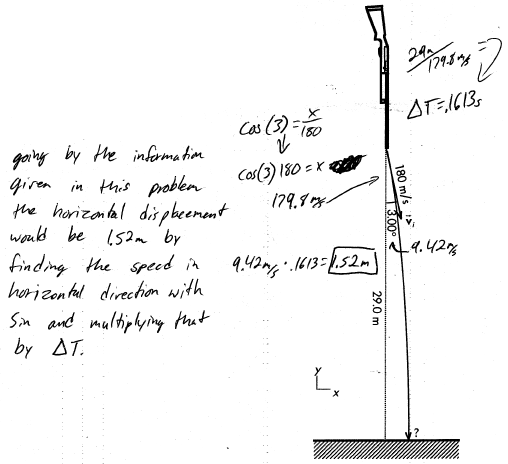 29m/179.8 m/s
ΔT = .1613s
cos(3) = x/180
cos(3) 180 = x
179.8 m/s
going by the information
given in this problem
the horizontal displacement
would be 1.52m by
finding the speed in
horizontal direction with
Sin and multiplying that
by ΔT.
180 m/s
v⃗i
3.00°
9.42 m/s
9.42 m/s · .1613 = 1.52 m
29.0 m
y
x
?